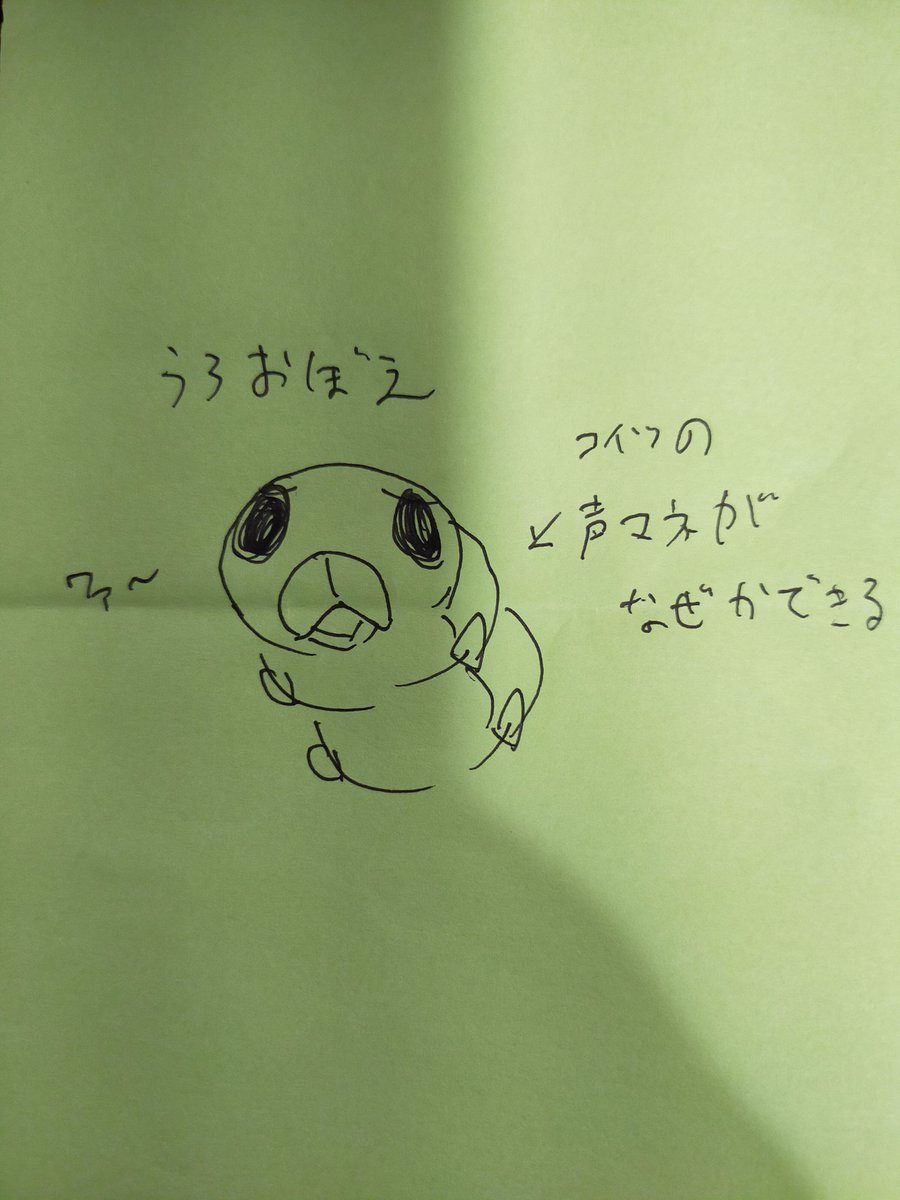 うろおぼえ
コイツの
声マネが
なぜかできる